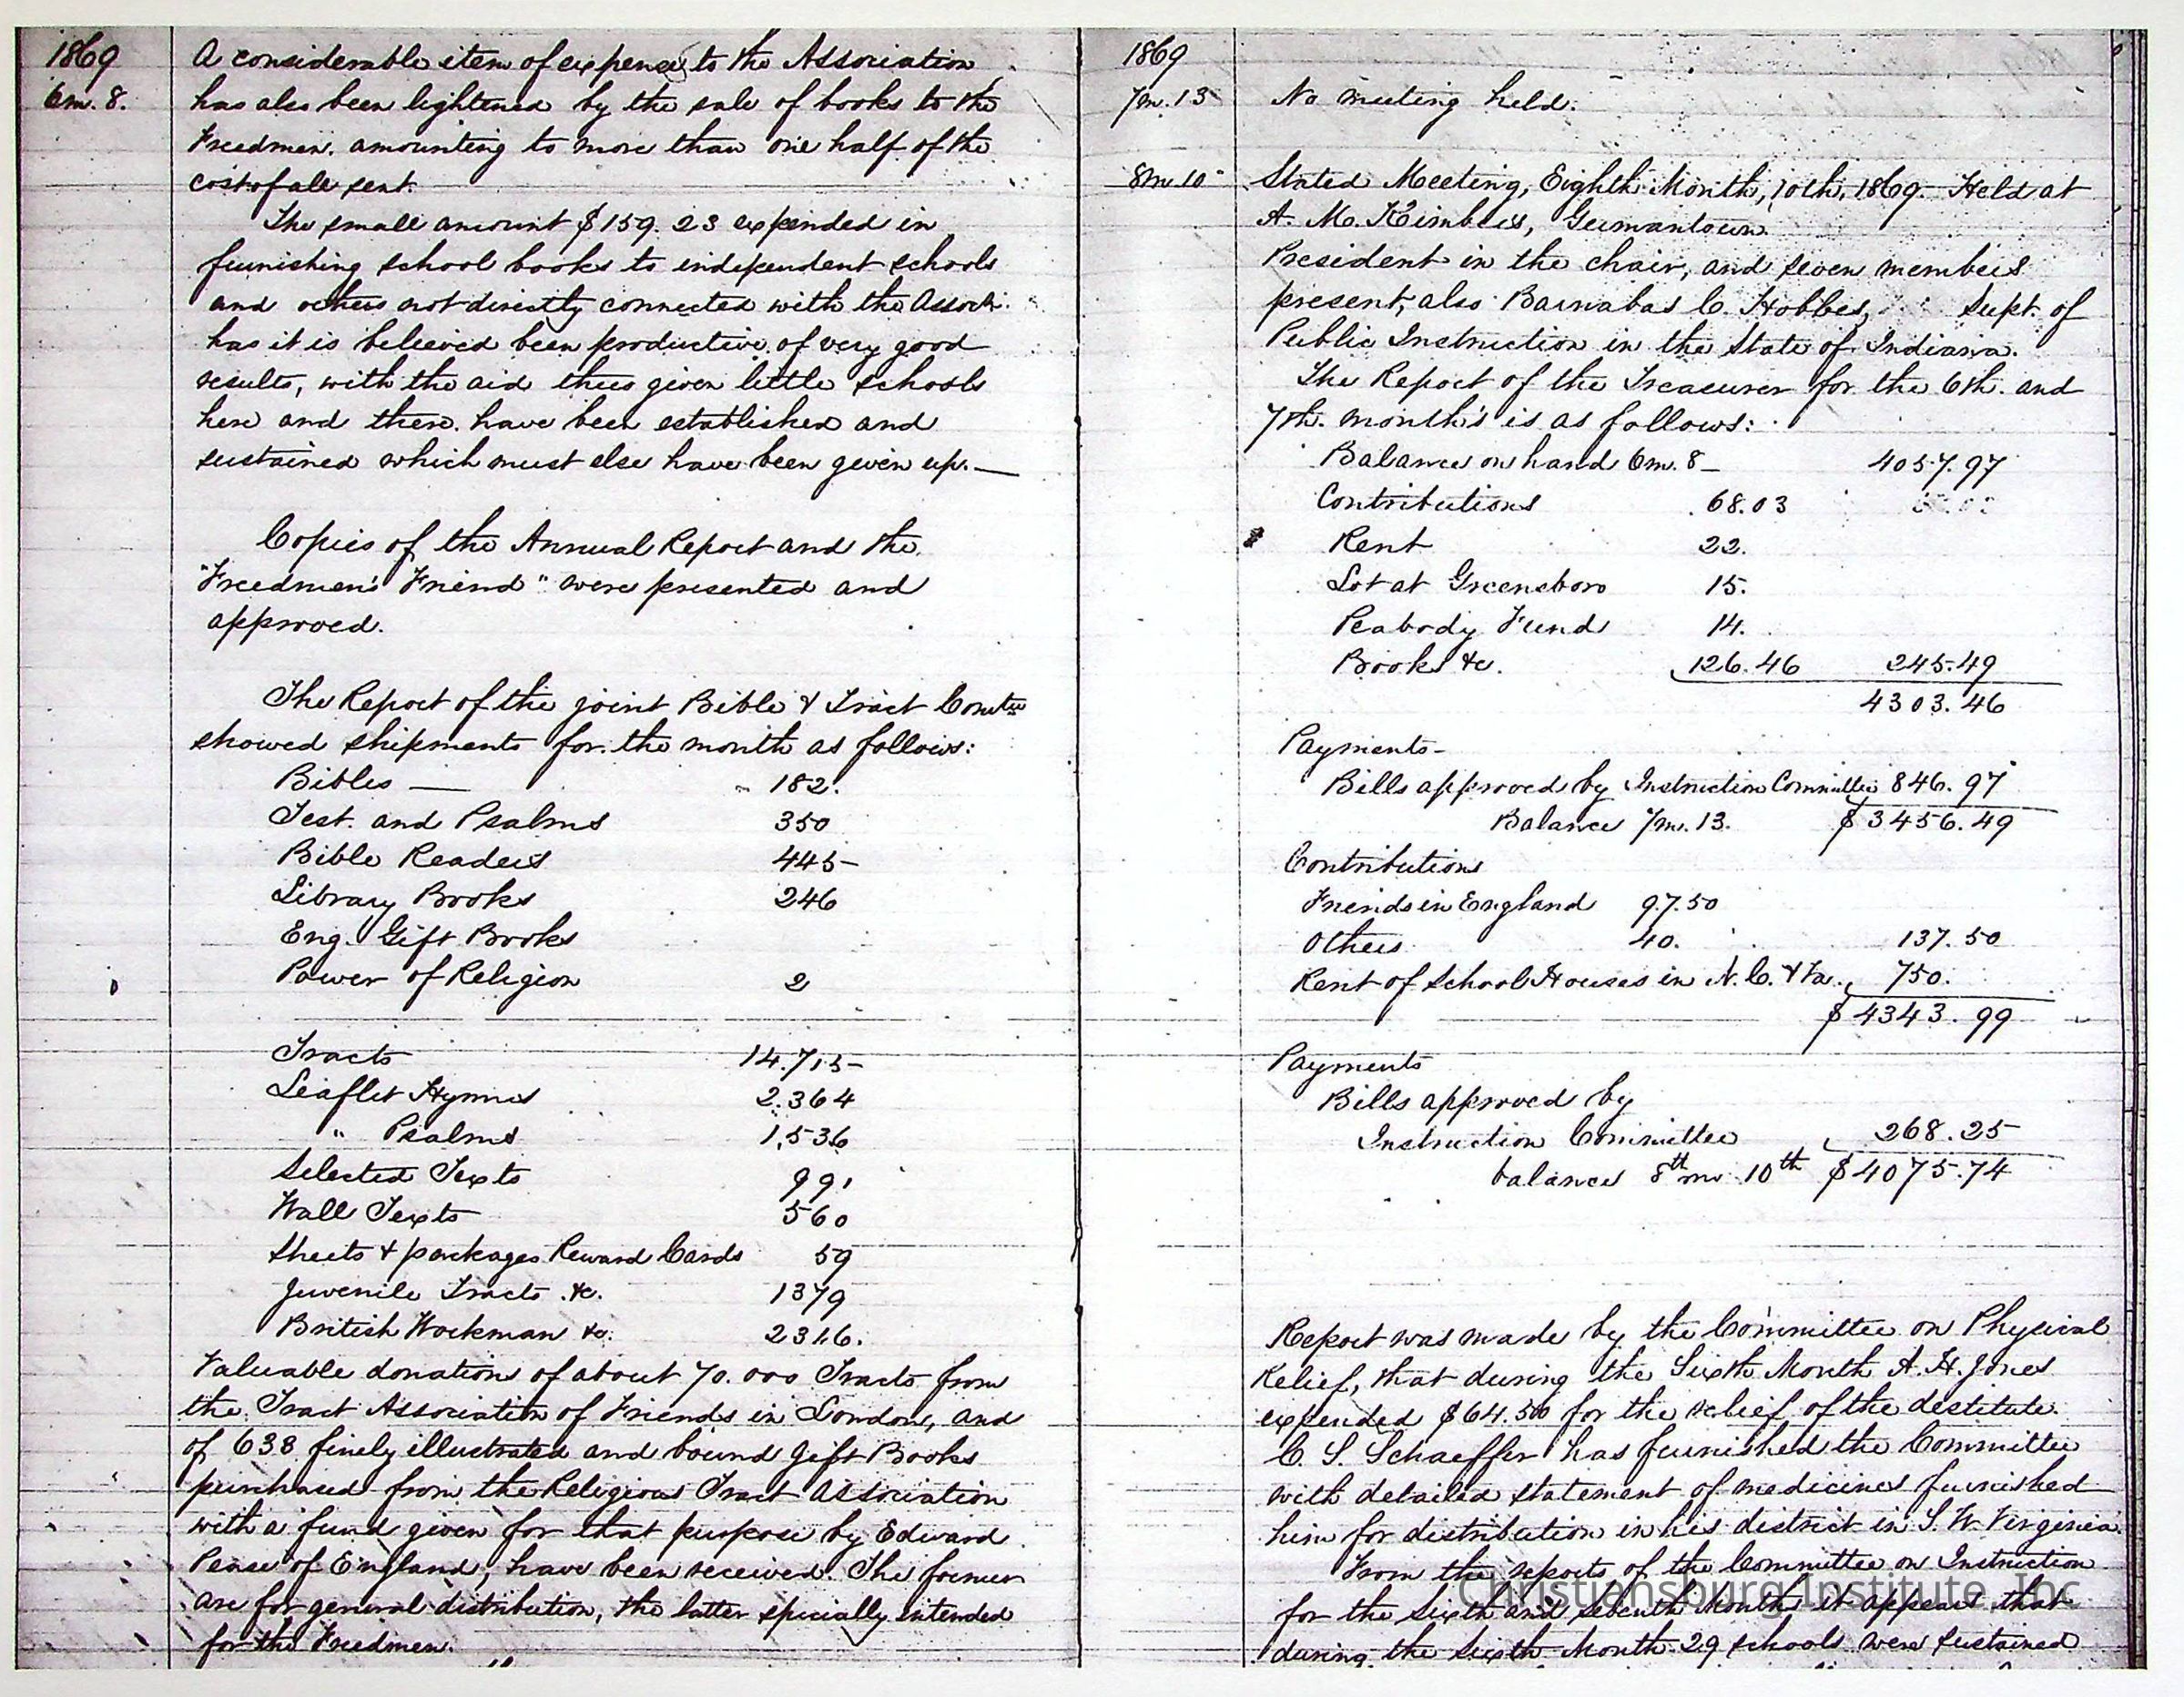 1869
6m. 8.
A considerable item of expense to the Association
has also been lightened by the sale of books to the
Freedmen. amounting to more than one half of the
cost of all sent.
The small amount $159.23 expended in
furnishing school books to independent schools
and others not directly connected with the Associ.
has it is believed been productive of very good
results, with the aid thus given little schools
here and there have been established and
sustained which must else have been given up. —
Copies of the Annual Report and the
"Freedmen's Friend" were presented and
approved.
The Report of the joint Bible & Tract Comtee
showed shipments for the month as follows:
Bibles — 182.
Test. and Psalms 350
Bible Readers 445
Library Books 246
Eng. Gift Books
Power of Religion 2
Tracts 14.715
Leaflet Hymns 2.364
" Psalms 1,536
Selected Texts 991
Wall Texts 560
Sheets & packages Reward Cards 59
Juvenile Tracts &c. 1379
British Workman &c. 2316.
Valuable donations of about 70.000 Tracts from
the Tract Association of Friends in London, and
of 638 finely illustrated and bound Gift Books
purchased from the Religious Tract Association
with a fund given for that purpose by Edward
Pease of England, have been received. The former
are for general distribution, the latter specially intended
for the Freedmen.
1869
7m. 13
No meeting held.
8m 10
Stated Meeting, Eighth Month, 10th, 1869. Held at
A. M. Kimber's, Germantown.
President in the chair, and seven members
present, also Barnabas C. Hobbes, Supt. of
Public Instruction in the State of Indiana.
The Report of the Treasurer for the 6th. and
7th. month's is as follows:
Balance on hand 6m. 8 — 4057.97
Contributions 68.03
Rent 22.
Lot at Greensboro 15.
Peabody Fund 14.
Books &c. 126.46 245.49
4303.46
Payments —
Bills approved by Instruction Committee 846.97
Balance 7m. 13. $3456.49
Contributions
Friends in England 97.50
Others 40. 137.50
Rent of School Houses in N.C. & Va. 750.
$4343.99
Payments
Bills approved by
Instruction Committee 268.25
balance 8th mo 10th $4075.74
Report was made by the Committee on Physical
Relief, that during the Sixth Month A. H. Jones
expended $64.50 for the relief of the destitute.
C. S. Schaeffer has furnished the Committee
with detailed statement of medicines furnished
him for distribution in his district in S. W. Virginia.
From the reports of the Committee on Instruction
for the Sixth and Seventh Month it appears that
during the Sixth Month 29 schools were sustained
Christiansburg Institute, Inc